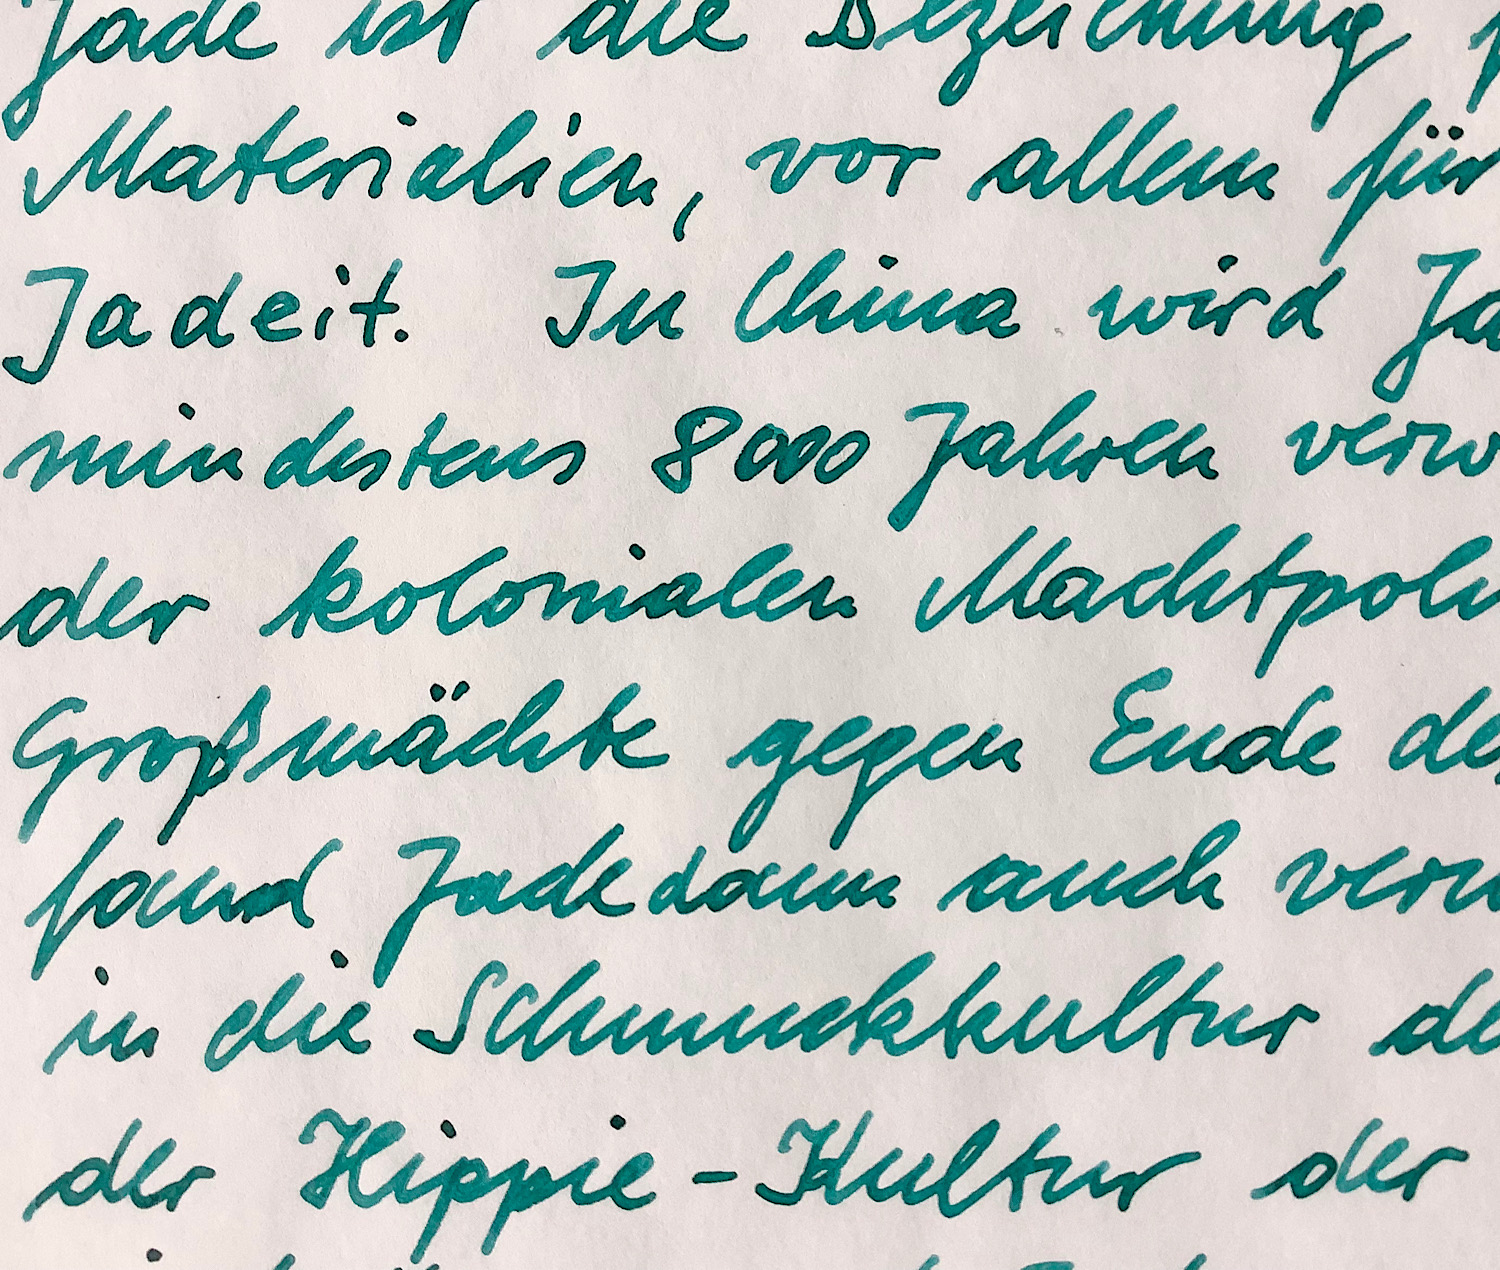 Jade ist die Bezeichnung
Materialien, vor allem für
Jadeit. In China wird Ja
mindestens 8000 Jahren verw
der kolonialen Machtpoli
Großmächte gegen Ende des
fand Jade dann auch verm
in die Schmuckkultur de
der Hippie-Kultur der